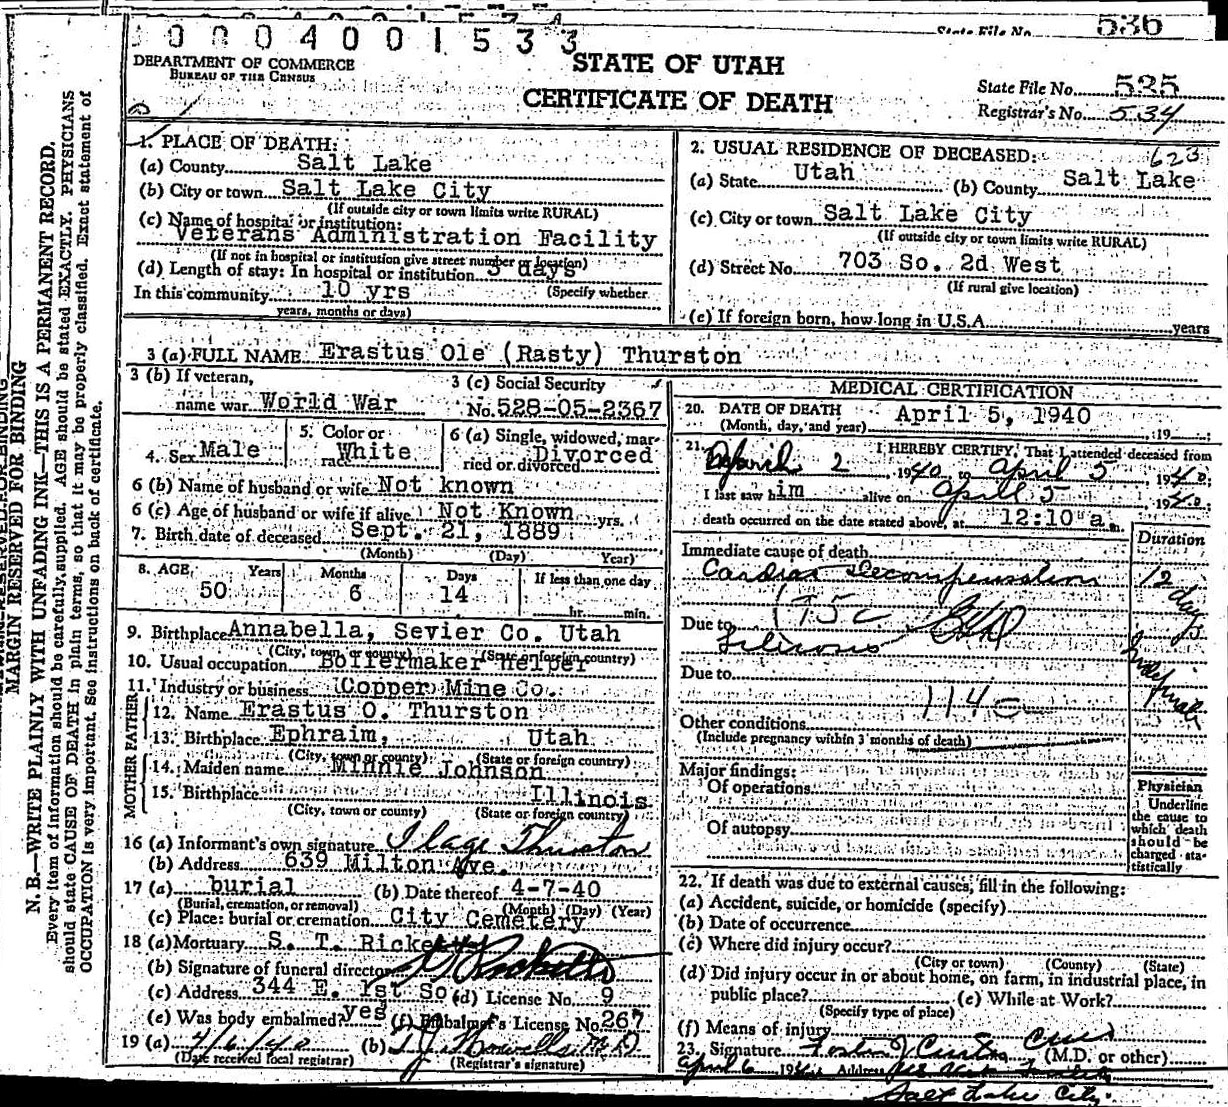 536
State File No.
0 0 0 4 0 0 1 5 3 3
DEPARTMENT OF COMMERCE
BUREAU OF THE CENSUS
STATE OF UTAH
CERTIFICATE OF DEATH
State File No. 535
Registrar's No. 534
1. PLACE OF DEATH:
(a) County Salt Lake
(b) City or town Salt Lake City
(If outside city or town limits write RURAL)
(c) Name of hospital or institution:
Veterans Administration Facility
(If not in hospital or institution give street number or location)
(d) Length of stay: In hospital or institution 3 days
In this community 10 yrs (Specify whether
years, months or days)
623
2. USUAL RESIDENCE OF DECEASED:
(a) State Utah (b) County Salt Lake
(c) City or town Salt Lake City
(If outside city or town limits write RURAL)
(d) Street No. 703 So. 2d West
(If rural give location)
(e) If foreign born, how long in U.S.A. years
3 (a) FULL NAME Erastus Ole (Rasty) Thurston
3 (b) If veteran,
name war World War
3 (c) Social Security
No. 528-05-2367
4. Sex Male
5. Color or
race White
6 (a) Single, widowed, mar-
ried or divorced Divorced
6 (b) Name of husband or wife Not known
6 (c) Age of husband or wife if alive Not Known yrs.
7. Birth date of deceased Sept. 21, 1889
(Month) (Day) Year)
8. AGE Years Months Days If less than one day
50 6 14 hr. min.
9. Birthplace Annabella, Sevier Co. Utah
(City, town, or county) (State or foreign country)
10. Usual occupation Boilermaker Helper
11. Industry or business (Copper) Mine Co.
FATHER
12. Name Erastus O. Thurston
13. Birthplace Ephraim, Utah
(City, town or county) (State or foreign country)
MOTHER
14. Maiden name Minnie Johnson
15. Birthplace Illinois
(City, town or county) (State or foreign country)
16 (a) Informant's own signature Thurston
(b) Address 639 Milton Ave.
17 (a) burial (b) Date thereof 4-7-40
(Burial, cremation, or removal) (Month) (Day) (Year)
(c) Place: burial or cremation City Cemetery
18 (a) Mortuary S. T.
(b) Signature of funeral director
(c) Address 344 E. 1st So. (d) License No. 9
(e) Was body embalmed? yes (f) Embalmer's License No. 267
19 (a) 4/6/40 (b) M D
(Date received local registrar) (Registrar's signature)
MEDICAL CERTIFICATION
20. DATE OF DEATH April 5, 1940
(Month, day, and year) , 19 ;
21. I HEREBY CERTIFY, That I attended deceased from
April 2 , 1940, to April 5 , 1940;
I last saw him alive on April 5 , 1940;
death occurred on the date stated above, at 12:10 a m.
Duration
Immediate cause of death
Cardiac Decompensation 12 days
Due to
Due to
Indefinite
Other conditions
(Include pregnancy within 3 months of death)
Major findings:
Of operations
Of autopsy
Physician
Underline
the cause to
which death
should be
charged sta-
tistically
22. If death was due to external causes, fill in the following:
(a) Accident, suicide, or homicide (specify)
(b) Date of occurrence
(c) Where did injury occur?
(City or town) (County) (State)
(d) Did injury occur in or about home, on farm, in industrial place, in
public place? (e) While at Work?
(Specify type of place)
(f) Means of injury
23. Signature (M.D. or other)
April 6 , 19 Address
Salt Lake City.
N. B.—WRITE PLAINLY WITH UNFADING INK—THIS IS A PERMANENT RECORD.
MARGIN RESERVED FOR BINDING
Every item of information should be carefully supplied. AGE should be stated EXACTLY. PHYSICIANS
should state CAUSE OF DEATH in plain terms, so that it may be properly classified. Exact statement of
OCCUPATION is very important. See instructions on back of certificate.